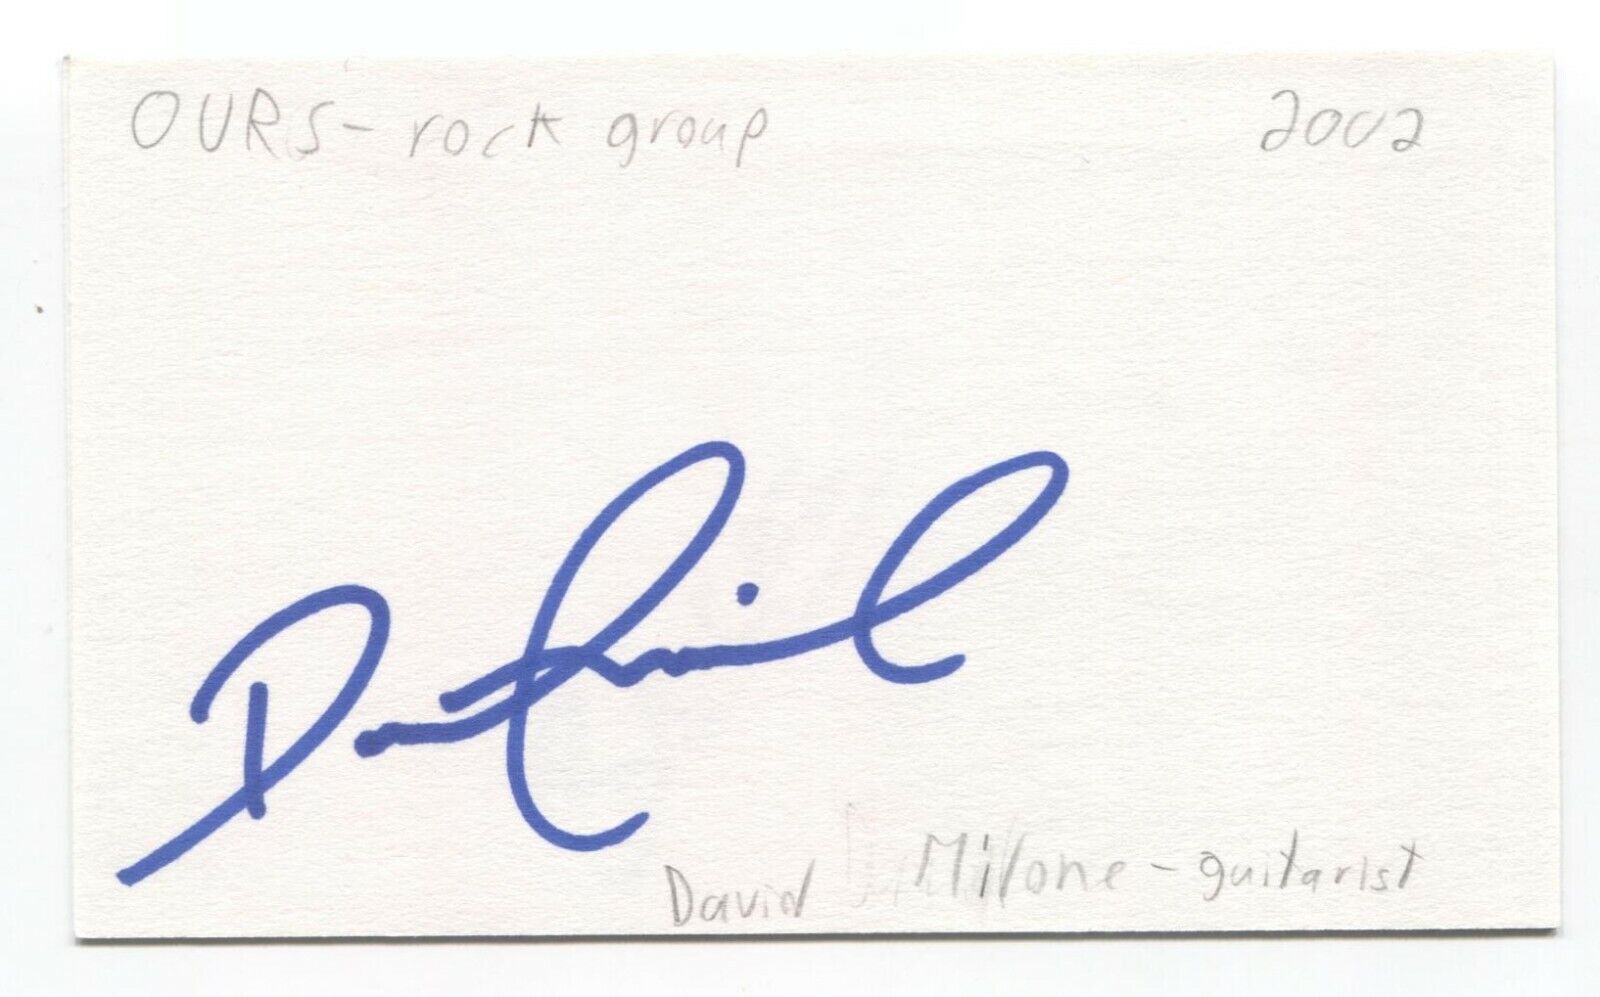 OURS - rock group 2002
David Milone - guitarist